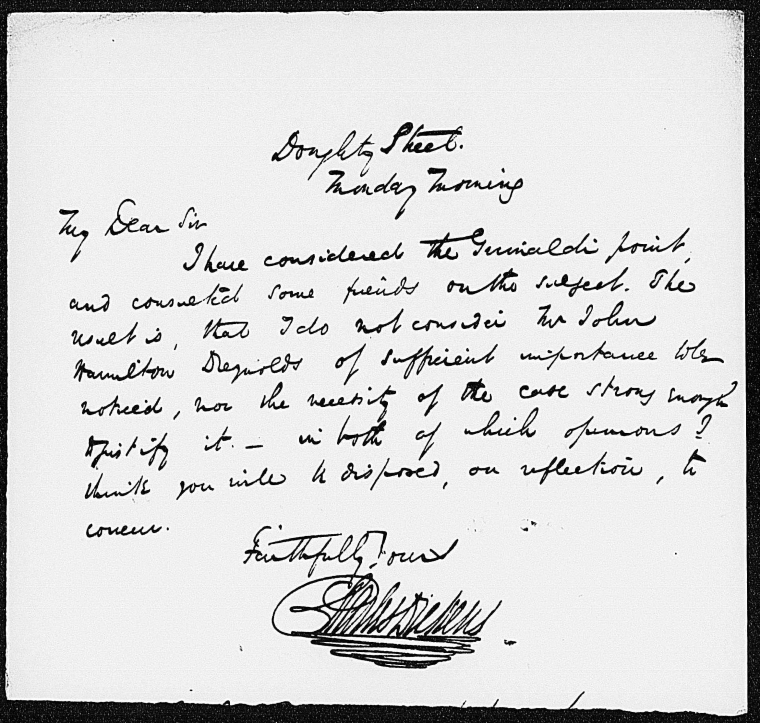 Doughty Street.
Monday Morning
My Dear Sir
I have considered the Grimaldi point,
and consulted some friends on the subject. The
result is, that I do not consider Mr John
Hamilton Reynolds of sufficient importance to be
noticed, nor the necessity of the case strong enough
to justify it. — in both of which opinions I
think you will be disposed, on reflection, to
concur.
Faithfully Yours
Charles Dickens